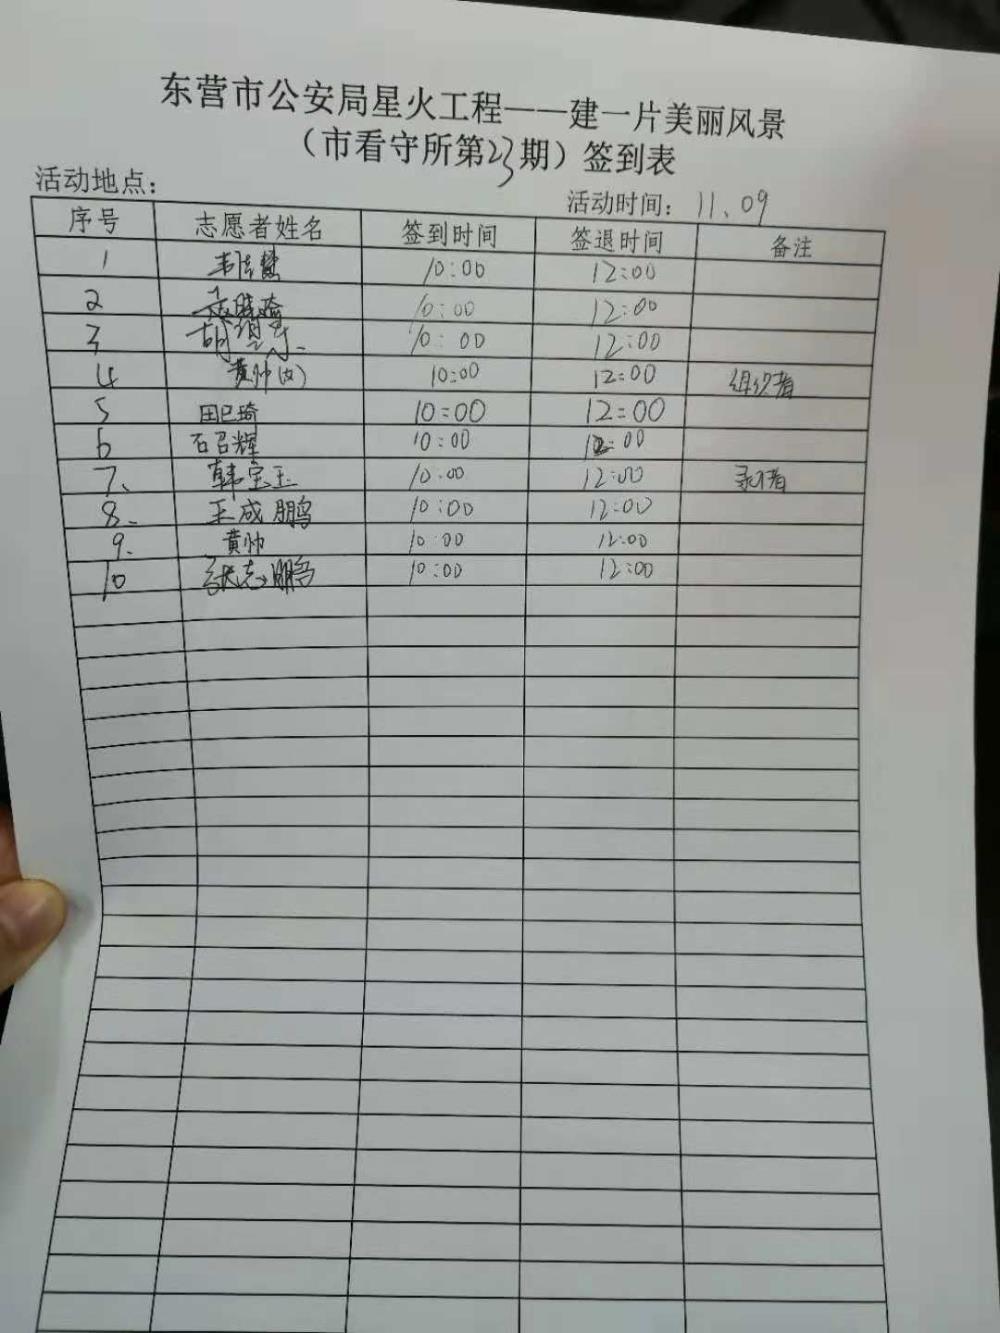 东营市公安局星火工程——建一片美丽风景
（市看守所第23期）签到表
活动地点： 活动时间：11、09
序号 志愿者姓名 签到时间 签退时间 备注
1 10:00 12:00
2 10:00 12:00
3 胡 10:00 12:00
4 黄帅(女) 10:00 12:00 组织者
5 田巳琦 10:00 12:00
6 石召辉 10:00 12:00
7、 韩宝玉 10:00 12:00 录入者
8、 王成鹏 10:00 12:00
9、 黄帅 10:00 12:00
10 志鹏 10:00 12:00